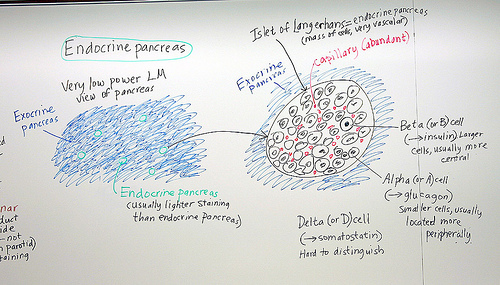 Endocrine pancreas
Very low power LM
view of pancreas
Exocrine
pancreas
Endocrine pancreas
(usually lighter staining
than endocrine pancreas)
Islet of Langerhans = endocrine pancreas
(mass of cells, very vascular)
capillary (abundant)
Exocrine
pancreas
Beta (or B) cell
(→ insulin) Larger
cells, usually more
central
Alpha (or A) cell
(→ glucagon)
Smaller cells, usually
located more
peripherally
Delta (or D) cell
(→ somatostatin)
Hard to distinguish
nar
duct
ide
- not
parotid)
taining